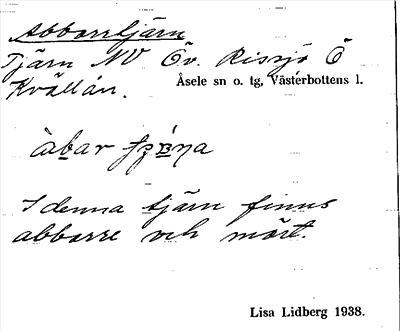 Abborrtjärn
Tjärn NV Öv. Rissjö Ö
Åsele sn o. tg, Västerbottens l.
Kvällån.
àbar
I denna tjärn finns
abborre och mört.
Lisa Lidberg 1938.